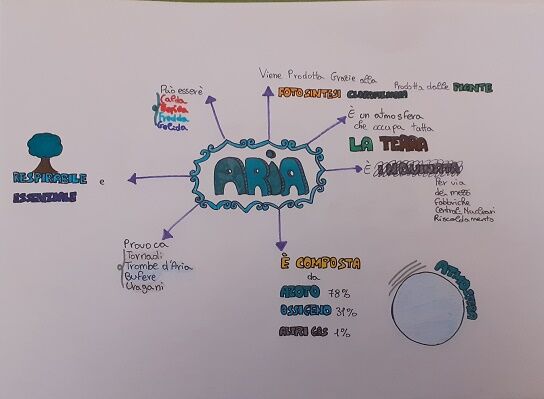 Viene Prodotta Grazie alla
FOTOSINTESI CLOROFILLIANA Prodotta dalle PIANTE
Può essere
Calda
Fredda
Gelida
È un atmosfera
che occupa tutta
LA TERRA
ARIA
È INQUINATA
Per via
dei mezzi
Fabbriche
Centrali Nucleari
Riscaldamento
RESPIRABILE e
ESSENZIALE
Provoca
Tornadi
Trombe d'Aria
Bufere
Uragani
È COMPOSTA
da
AZOTO 78%
OSSIGENO 31%
ALTRI GAS 1%
ATMOSFERA